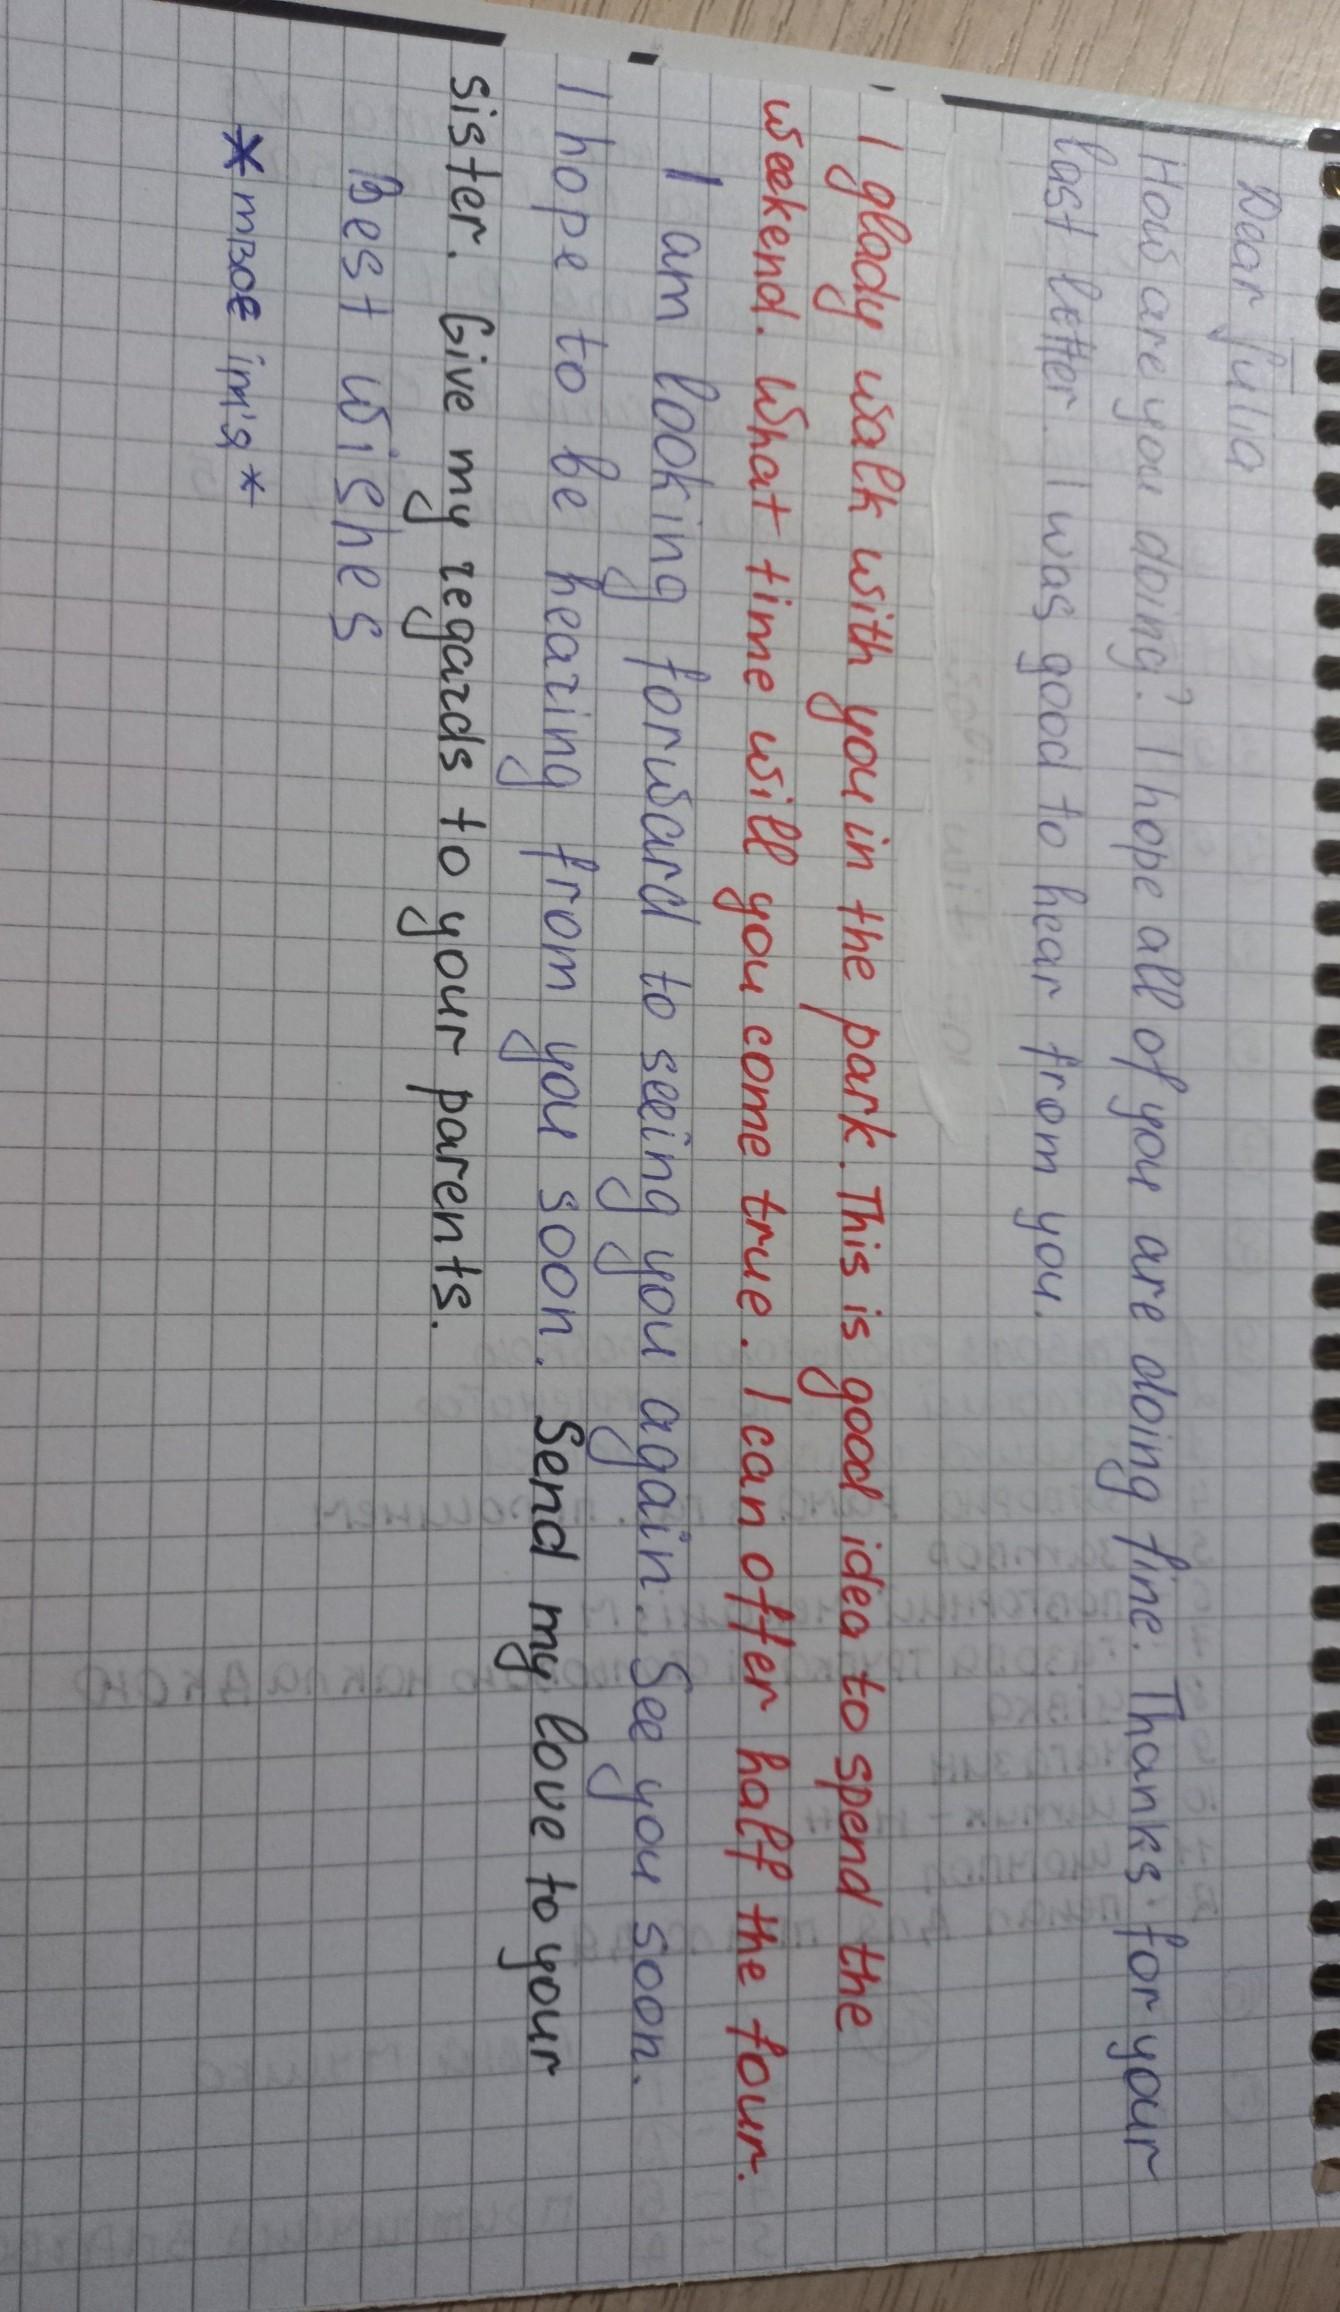 Dear Julia
How are you doing? I hope all of you are doing fine. Thanks for your
last letter. I was good to hear from you.
I glady walk with you in the park. This is good idea to spend the
weekend. What time will you come true. I can offer half the four.
I am looking forward to seeing you again. See you soon.
I hope to be hearing from you soon. Send my love to your
sister. Give my regards to your parents.
Best wishes
*твоє ім'я*